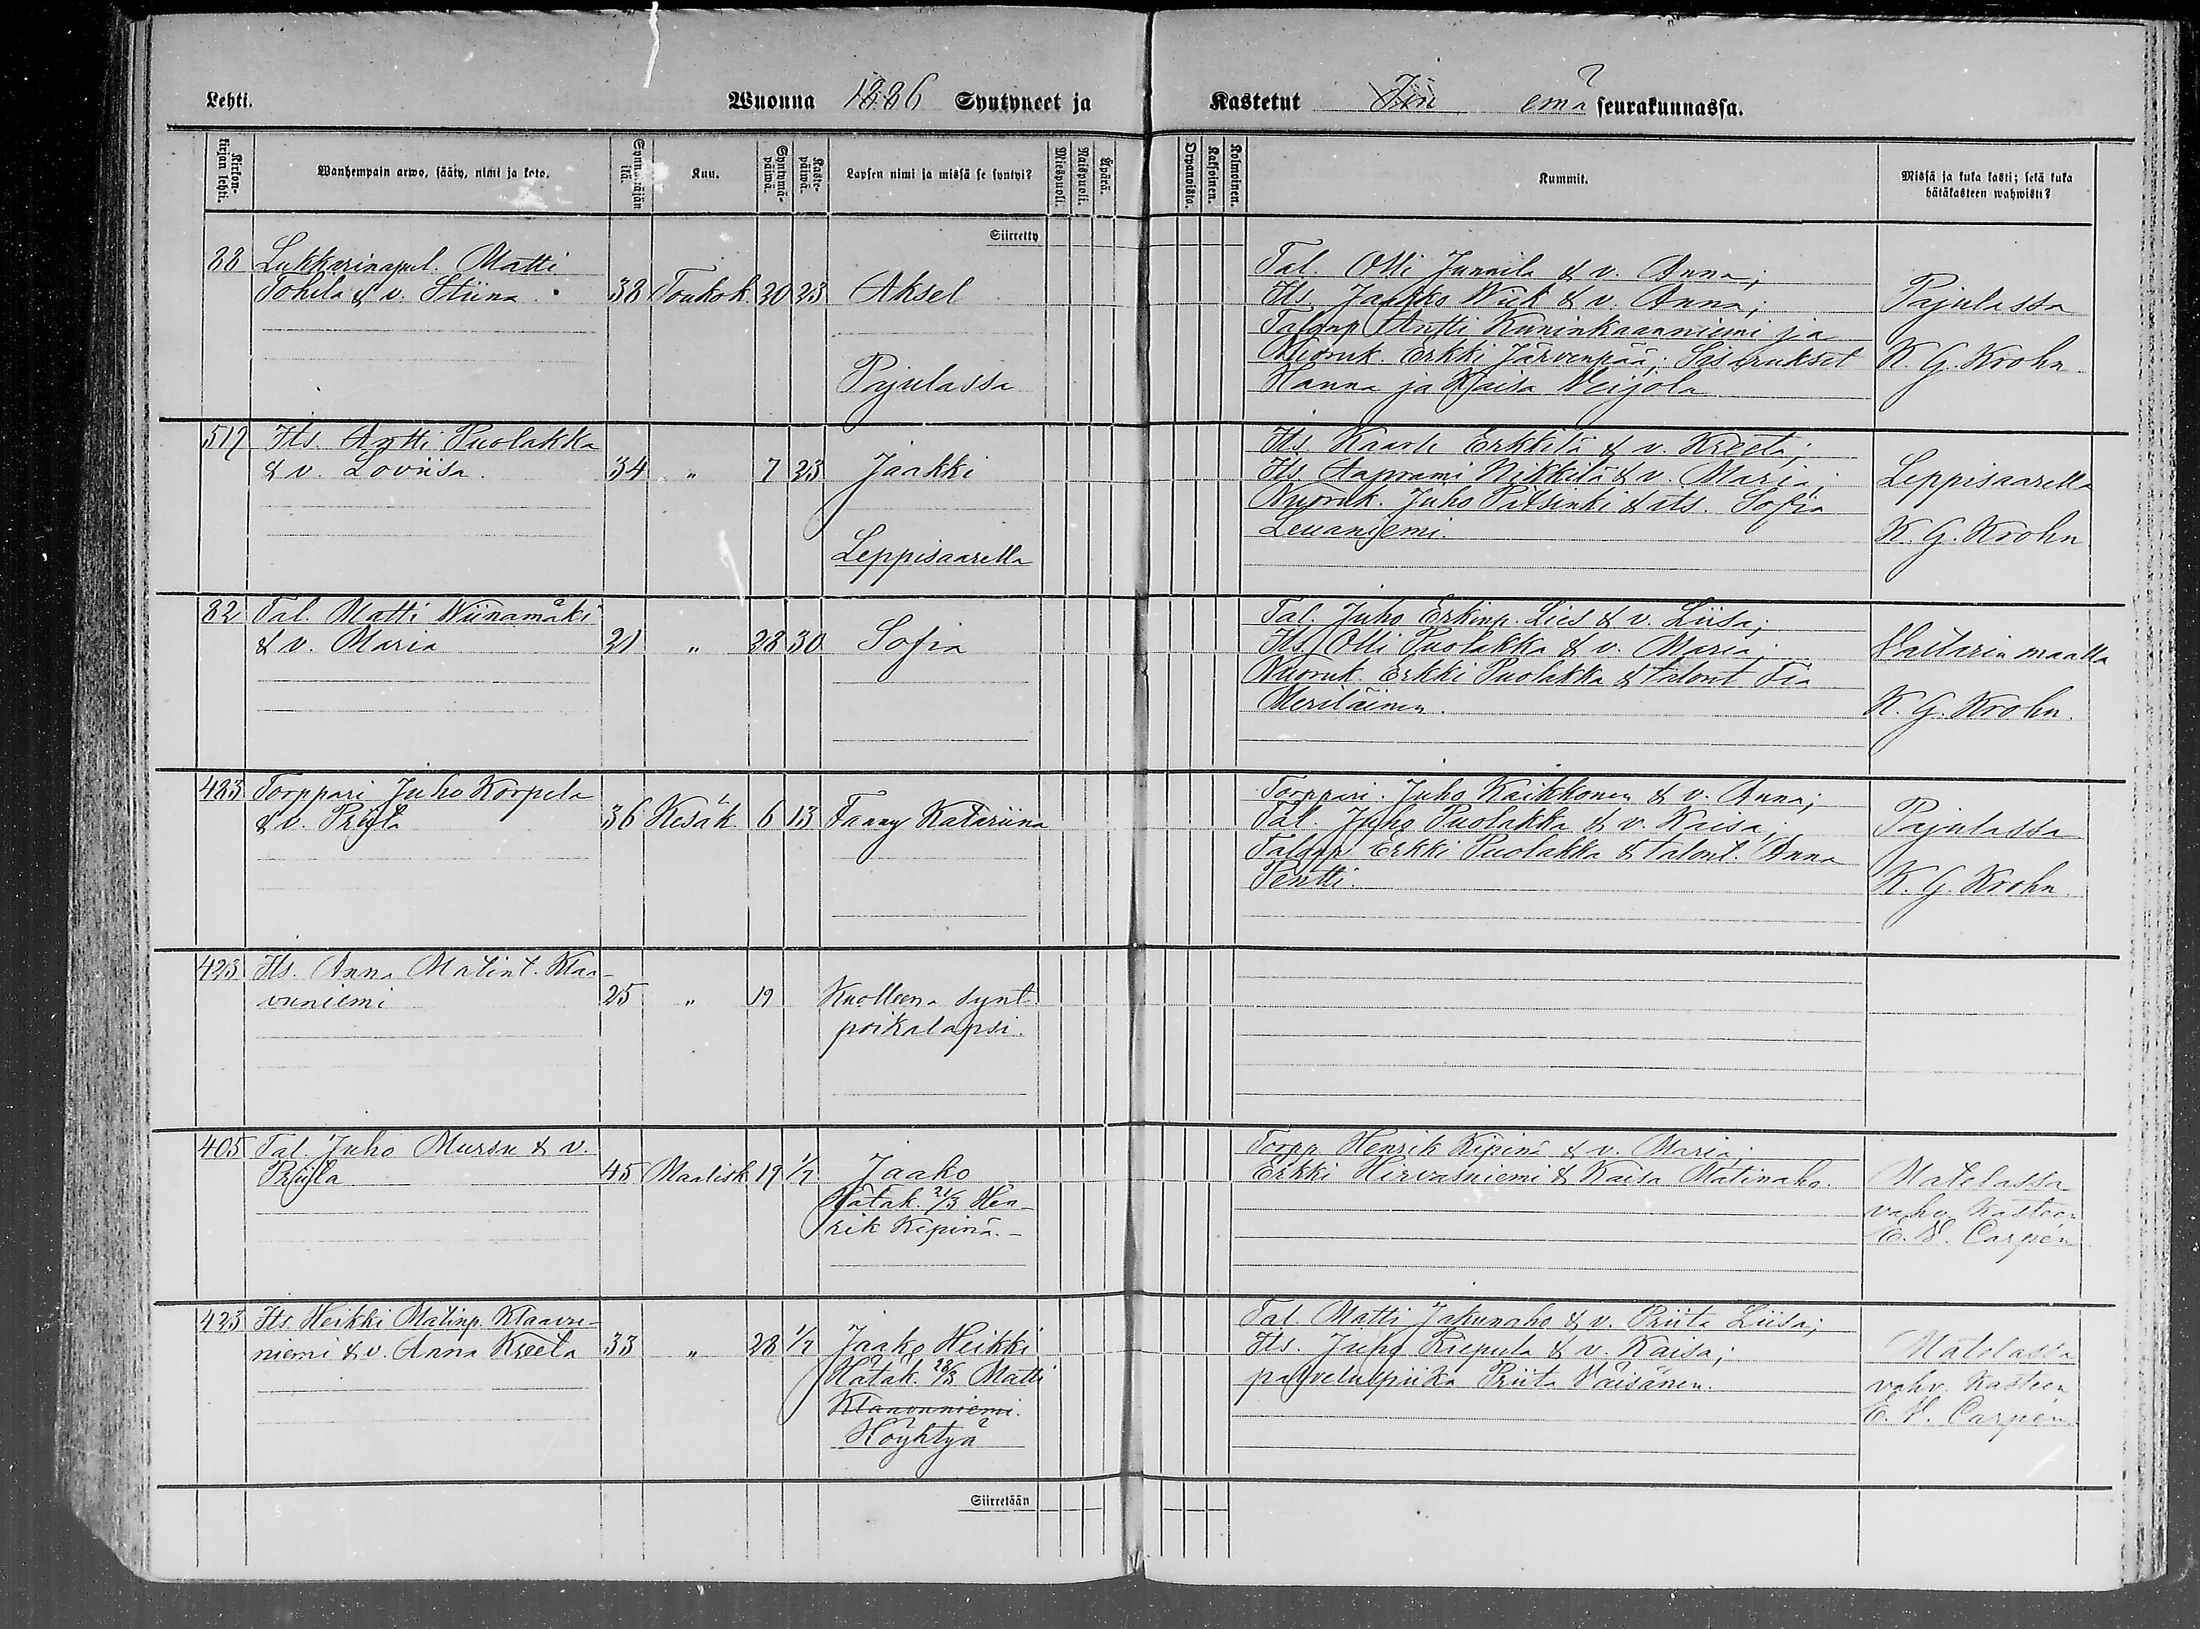 Lehti. Wuonna 1886 Syntyneet ja Kastetut Iin emä seurakunnassa.
Kirkonkirjan lehti. Wanhempain arwo, sääty, nimi ja koto. Synnyttäjän ikä. Kuu. Syntymäpäiwä. Kastepäiwä. Lapsen nimi ja missä se syntyi? Miespuoli. Naispuoli. Äpärä. Orpanoista. Kaksoinen. Kolmoinen. Kummit. Missä ja kuka kasti; sekä kuka hätäkasteen wahwisti?
Siirretty
88 Lukkarinapul. Matti
Tohila & v. Stiina. 38 Toukok. 20 23 Aksel
Pajulassa
Tal. Olli Junnila & v. Anna;
Its. Jaakko Wick & v. Anna;
Talonp. Antti Kuninkaanniemi ja
Nuoruk. Erkki Järvenpää; Sisarukset
Hanna ja Kaisa Veijola
Pajulassa
K. G. Krohn.
517 Its. Antti Puolakka
& v. Loviisa. 34 " 7 23 Jaakki
Leppisaarella
Its. Kaarle Erkkilä & v. Kreeta;
Its. Aaprami Nikkilä & v. Maria;
Nuoruk. Juho Päkinki & its. Sofia
Leuaniemi.
Leppisaarella
K. G. Krohn
82 Tal. Matti Wiinamäki
& v. Maria 21 " 28 30 Sofia
Tal. Juho Erkinp. Lies & v. Liisa;
Its. Olli Puolakka & v. Maria;
Nuoruk. Erkki Puolakka & talont. Fia
Meriläinen.
K. G. Krohn.
483 Torppari Juho Korpela
& v. Priita 36 Kesäk. 6 13 Fanny Katariina
Torppari. Juho Kaikkonen & v. Anna;
Tal. Juho Puolakka & v. Kaisa;
Talonp. Erkki Puolakka & talont. Anna
Pentti.
Pajulassa
K. G. Krohn.
423 Its. Anna Matint. Klaa-
vuniemi 25 " 19 Kuolleena synt.
poikalapsi.
405 Tal. Juho Mursu & v.
Priita 45 Maalisk. 19 1/7 Jaako
Hätäk. 21/3 Hen-
rik Kipinä.-
Torpp. Henrik Kipinä & v. Maria;
Erkki Hirvasniemi & Kaisa Matinaho.
Matelassa
vahv. kasteen
E. V. Carpén
423 Its. Heikki Matinp. Klaavu-
niemi & v. Anna Kreeta 33 " 28 1/7 Jaako Heikki
Hätäk. 28/3 Matti
Klaavunniemi.
Höyhtyä
Tal. Matti Jakunaho & v. Priita Liisa;
Its. Juho Riepula & v. Kaisa;
palveluspiika Priita Väisänen.
Matelassa
vahv. kasteen
E. V. Carpén.
Siirretään